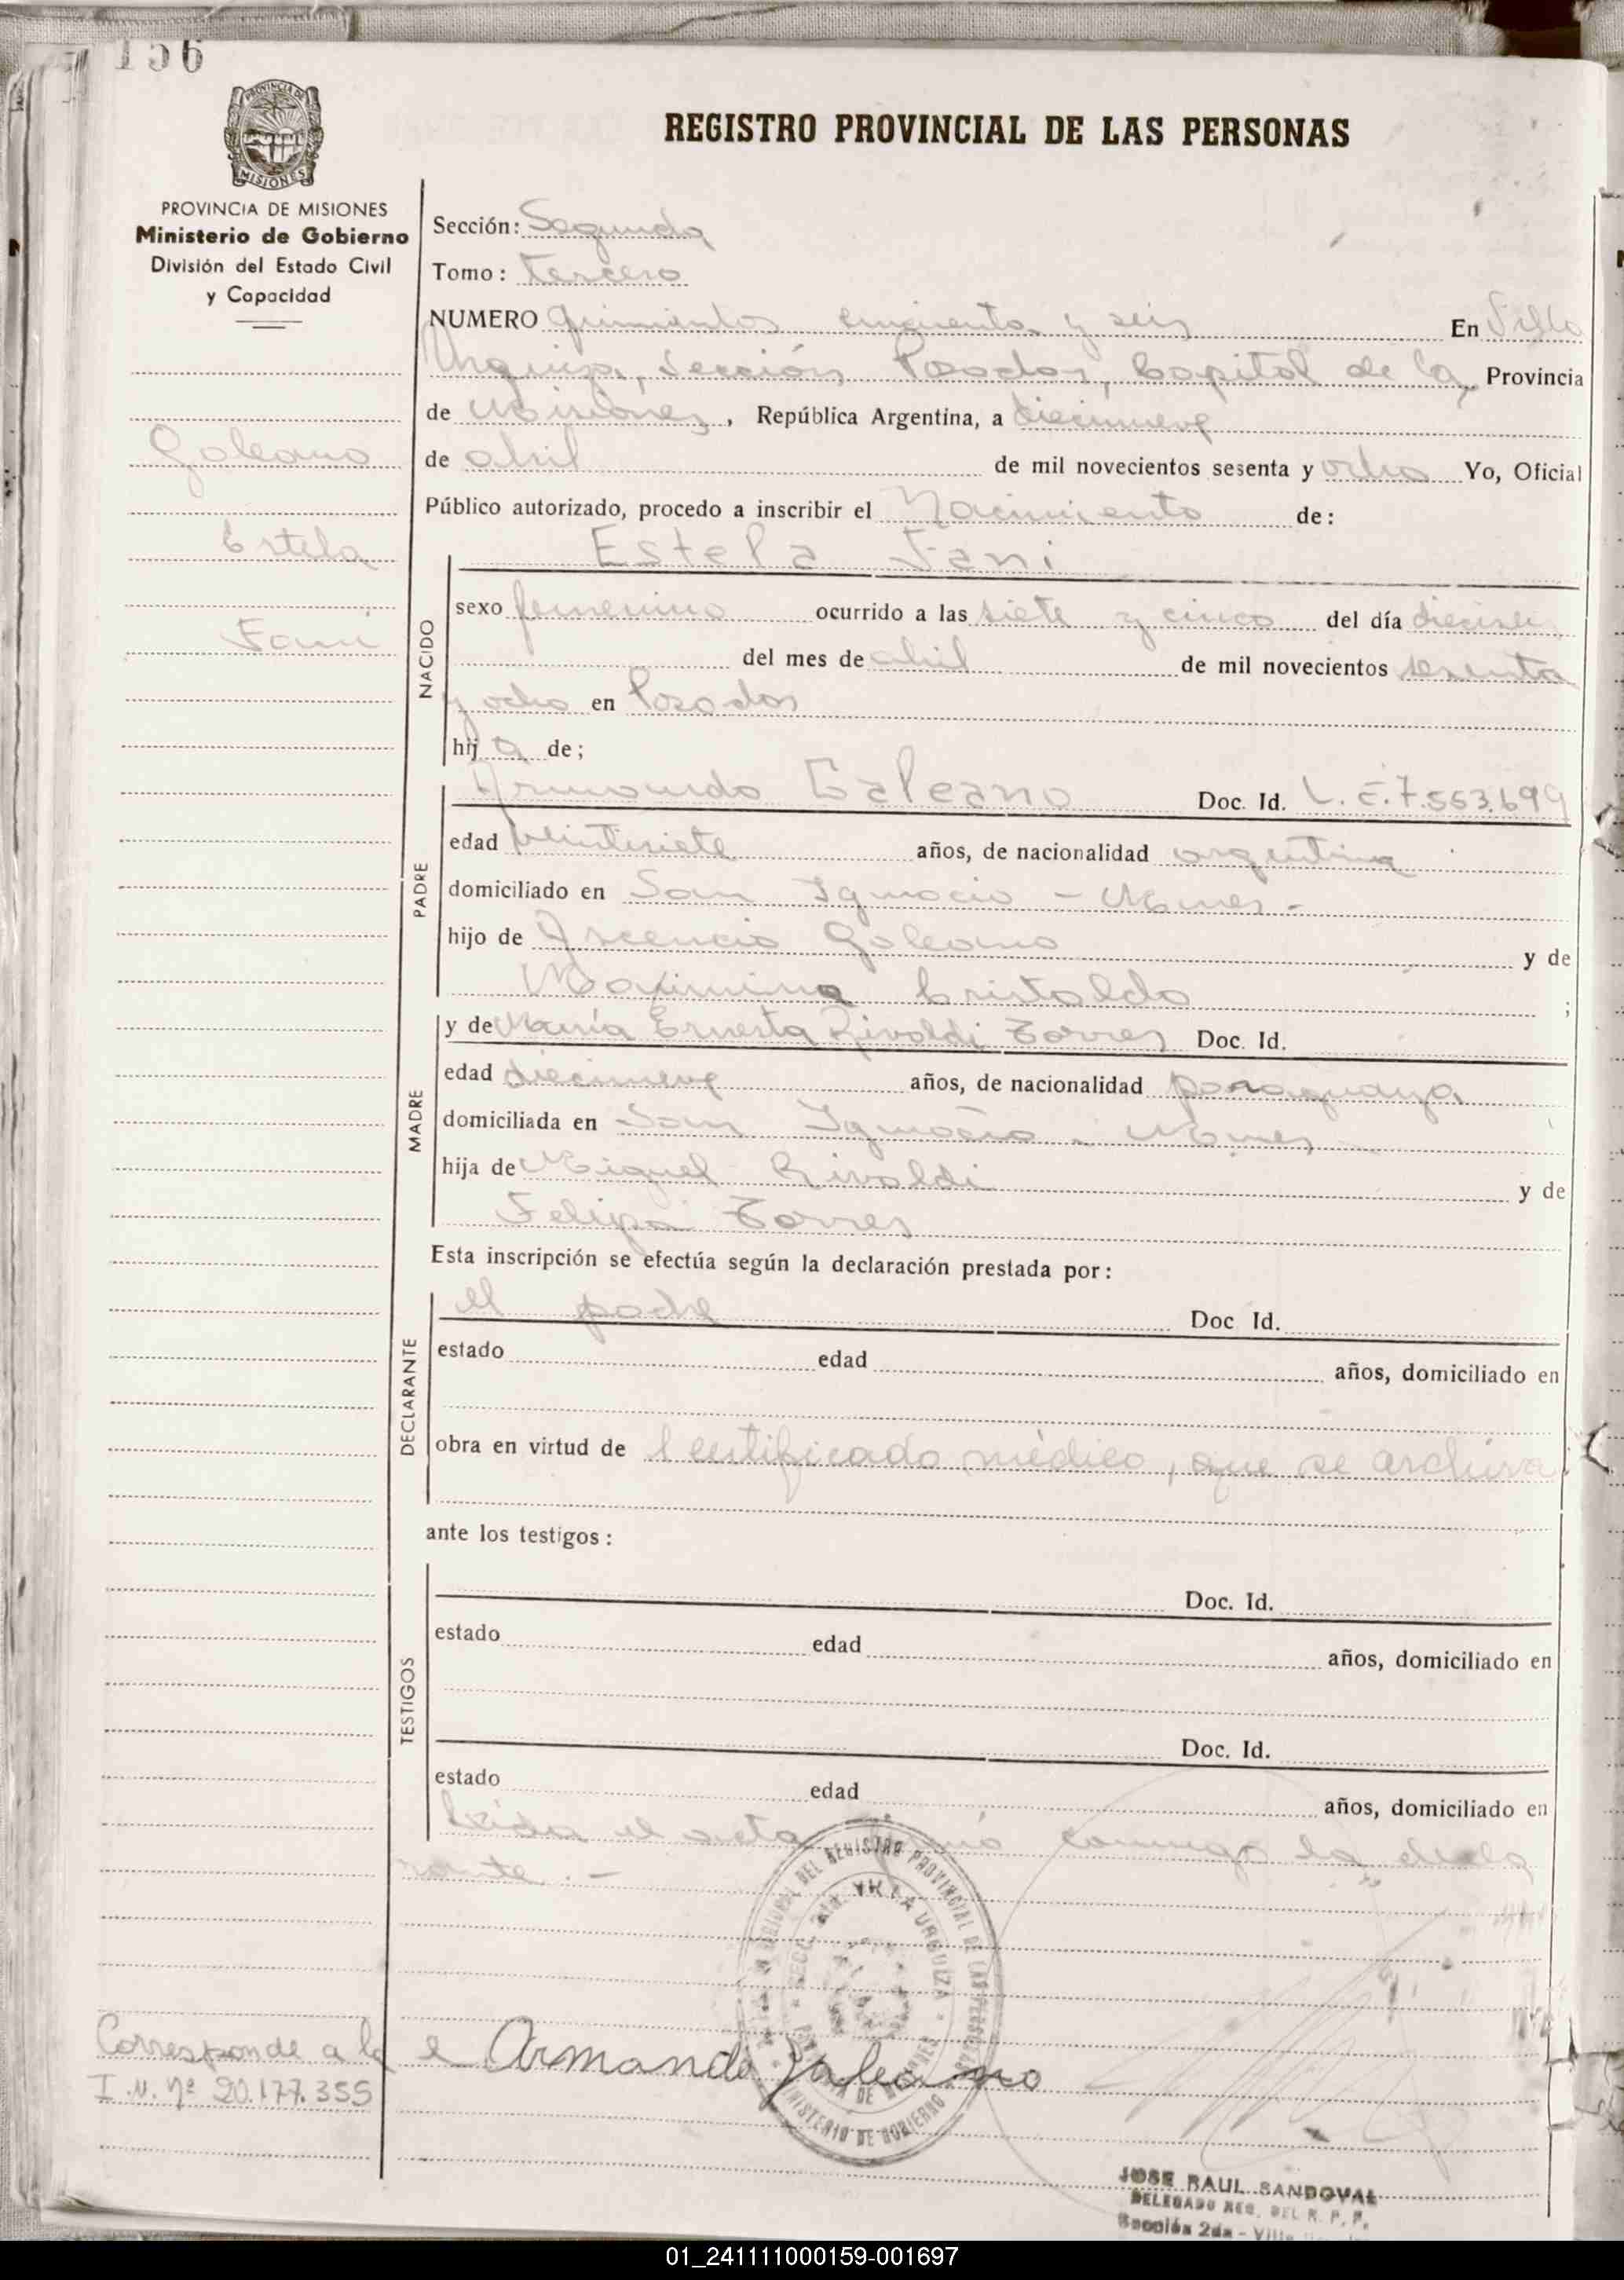 156
PROVINCIA DE MISIONES
REGISTRO PROVINCIAL DE LAS PERSONAS
PROVINCIA DE MISIONES
Ministerio de Gobierno
División del Estado Civil
y Capacidad
Galeano
Estela
Fani
Sección: Segunda
Tomo: tercero
NUMERO quinientos cincuenta y seis En Villa
Urquiza, Sección Posadas, Capital de la Provincia
de Misiones, República Argentina, a diecinueve
de abril de mil novecientos sesenta y ocho Yo, Oficial
Público autorizado, procedo a inscribir el Nacimiento de:
Estela Fani
NACIDO
sexo femenino ocurrido a las siete y cinco del día
del mes de abril de mil novecientos sesenta
y ocho en Posadas
hij a de;
PADRE
Armando Galeano Doc. Id. L.E. 7.553.699
edad veintisiete años, de nacionalidad argentina
domiciliado en San Ignacio - Mnes -
hijo de Ascencio Galeano y de
Maximina Cristaldo ;
MADRE
y de María Ernesta Rivaldi Torres Doc. Id.
edad diecinueve años, de nacionalidad paraguaya
domiciliada en San Ignacio - Mnes -
hija de Miguel Rivaldi y de
Felipa Torres
Esta inscripción se efectúa según la declaración prestada por:
DECLARANTE
el padre Doc Id.
estado edad años, domiciliado en
obra en virtud de certificado médico, que se archiva.
ante los testigos:
TESTIGOS
Doc. Id.
estado edad años, domiciliado en
Doc. Id.
estado edad años, domiciliado en
Leída el acta firmó conmigo la decla
rante. -
DEL REGISTRO PROVINCIAL DE LAS PERSONAS
SECC. 2da. VILLA URQUIZA
MINISTERIO DE GOBIERNO
Corresponde a la
I.N. Nº 20.177.355
Armando Galeano
JOSE RAUL SANDOVAL
DELEGADO REG. DEL R. P. P.
Sección 2da - Villa
01_241111000159-001697